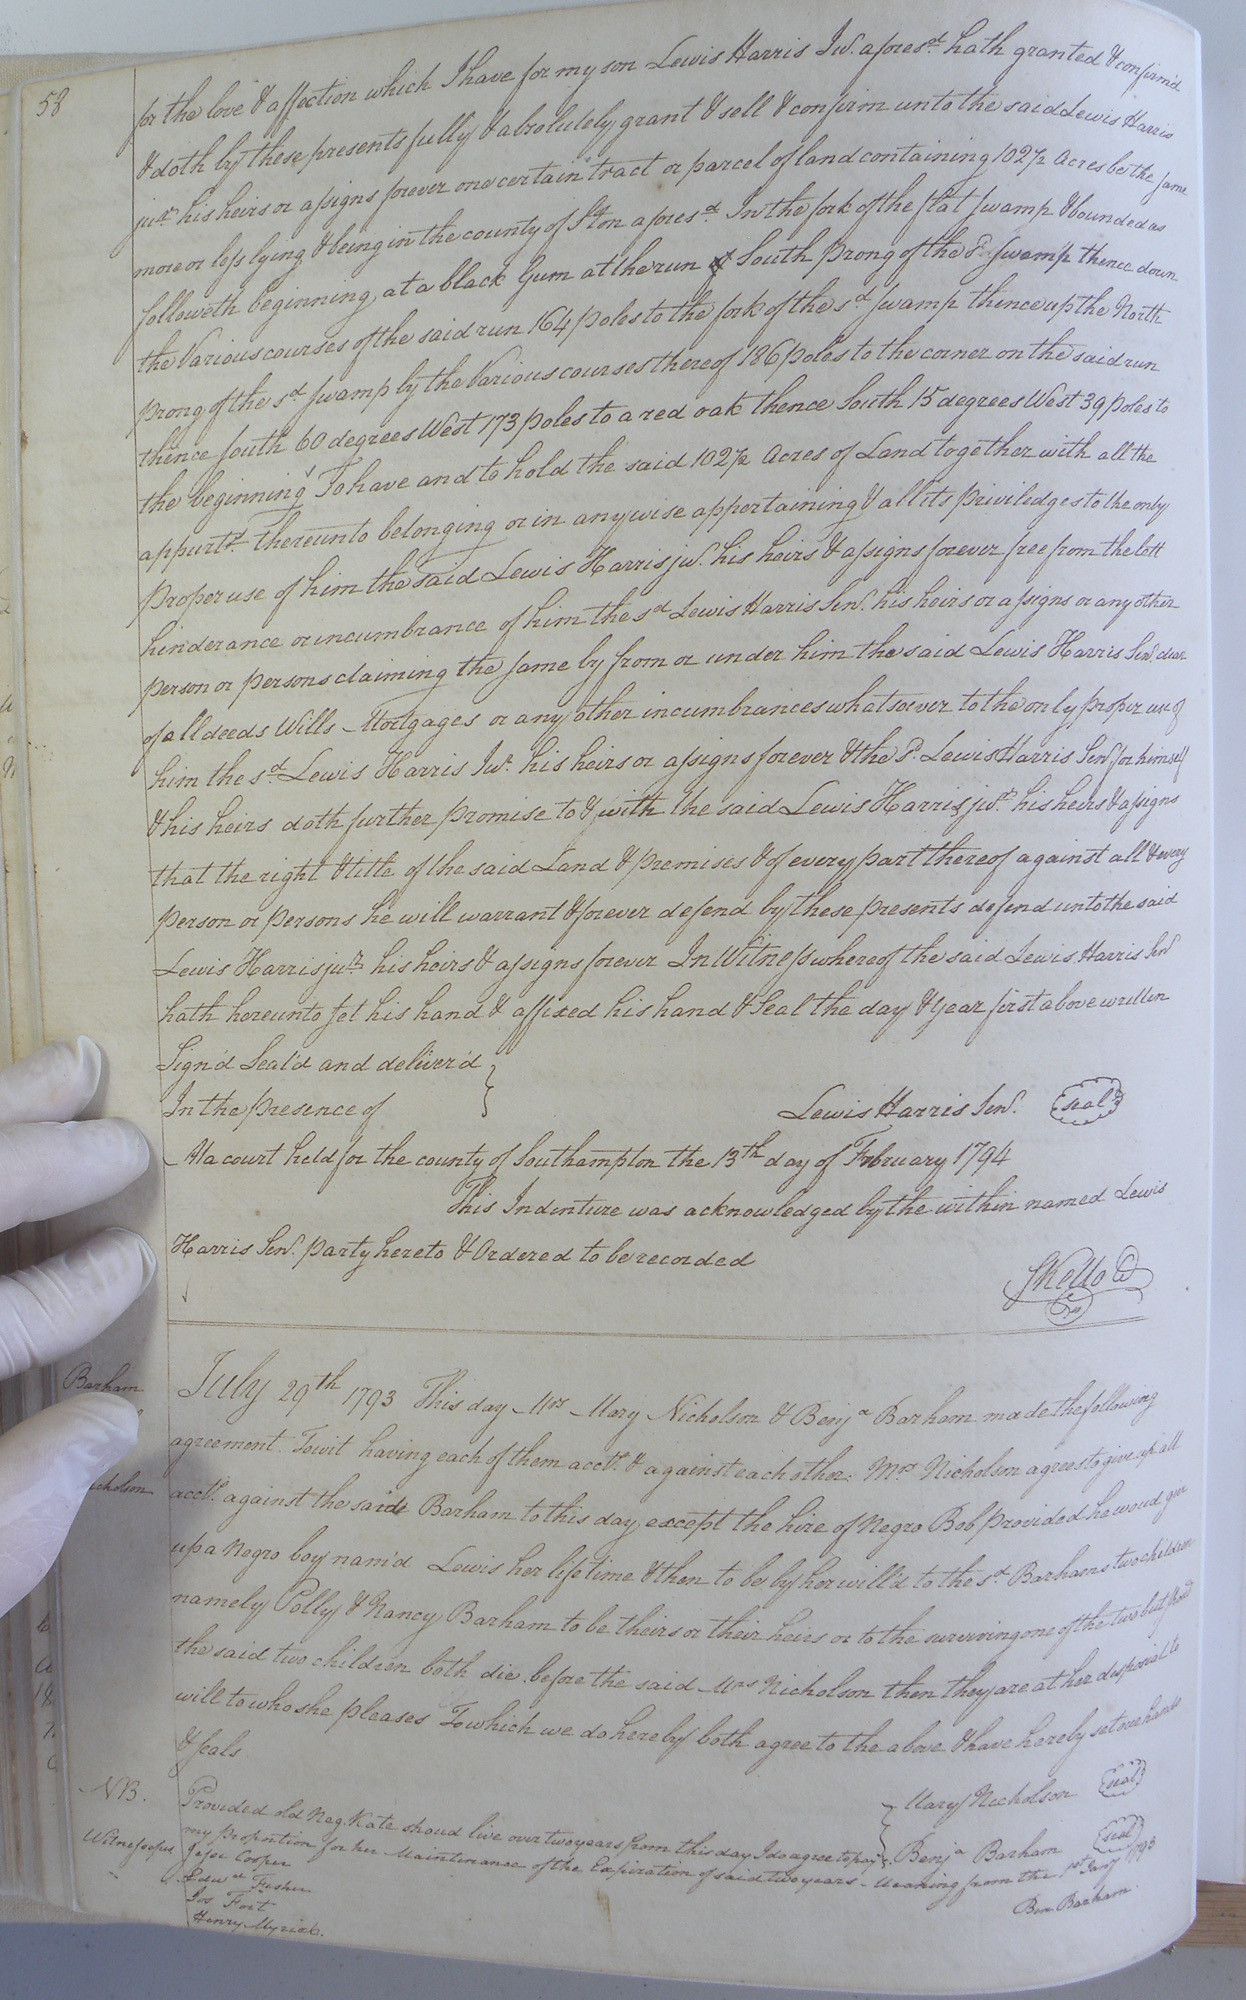 58
for the love & affection which I have for my son Lewis Harris Junr. aforesd. hath granted & confirm'd
& doth by these presents fully & absolutely grant & sell & confirm unto the said Lewis Harris
junr. his heirs or assigns forever one certain tract or parcel of land containing 102½ Acres be the same
more or less lying & being in the county of S'ton aforesd. In the fork of the flat swamp & bounded as
followeth beginning, at a black Gum at the run of South prong of the sd. swamp thence down
the Various courses of the said run 164 poles to the fork of the sd. swamp thence up the North
prong of the sd. swamp by the Various courses thereof 186 poles to the corner on the said run
thence south 60 degrees West 173 poles to a red oak thence South 15 degrees West 39 poles to
the beginning To have and to hold the said 102½ Acres of Land together with all the
appurts. thereunto belonging or in anywise appertaining & all its priviledges to the only
proper use of him the said Lewis Harris jur. his heirs & assigns forever free from the lett
hinderance or incumbrance of him the sd. Lewis Harris Senr. his heirs or assigns or any other
person or persons claiming the same by from or under him the said Lewis Harris Senr. clear
of all deeds Wills Mortgages or any other incumbrances whatsoever to the only proper use of
him the sd. Lewis Harris Jur. his heirs or assigns forever & the sd. Lewis Harris Senr for himself
& his heirs doth further promise to & with the said Lewis Harris jur. his heirs & assigns
that the right & title of the said Land & premises & of every part thereof against all & every
person or persons he will warrant & forever defend by these presents defend unto the said
Lewis Harris junr. his heirs & assigns forever In Witness whereof the said Lewis Harris Senr
hath hereunto set his hand & affixed his hand & Seal the day & year first above written
Sign'd Seal'd and deliver'd
In the presence of
Lewis Harris Senr. seal
At a court held for the county of Southampton the 13th day of February 1794
This Indenture was acknowledged by the within named Lewis
Harris Senr. party hereto & Ordered to be recorded
Barham
July 29th 1793 This day Mrs Mary Nicholson & Benja Barham made the following
agreement. Towit having each of them acctts. & against each other: Mrs Nicholson agrees to give up all
accts. against the said Barham to this day except the hire of Negro Bob provided he woud give
up a Negro boy nam'd Lewis her life time & then to be by her will'd to the sd. Barhams two children
namely Polly & Nancy Barham to be theirs or their heirs or to the surviving one of the two but shoud
the said two children both die before the said Mrs Nicholson then they are at her disposial to
will to who she pleases To which we do hereby both agree to the above & have hereby set our hands
& seals
Mary Nicholson seal
Benja Barham seal
NB. Provided old Neg. Kate shoud live over two years from this day I do agree to pay
my proportion for her Maintenance of the Expiration of said two years - Meaning from the 1st Jany 1793
Ben Barham
Witnesses
Jesse Cooper
Edwd Fisher
Jos. Fort
Henry Myrick.